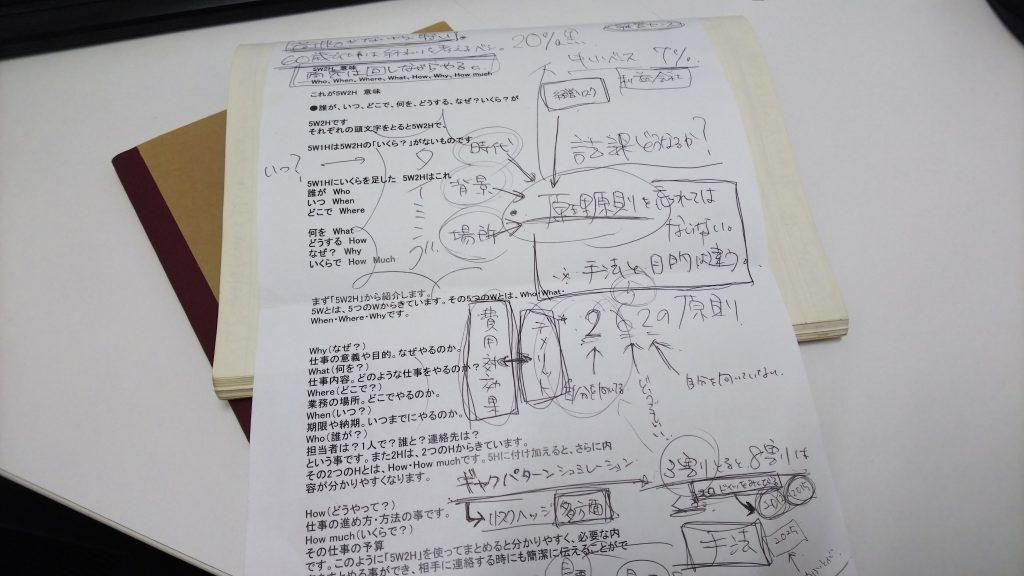 60歳
20%
7%
5W2H 意味
Who、When、Where、What、How、Why、How much
これが5W2H 意味
●誰が、いつ、どこで、何を、どうする、なぜ?いくら?が
5W2Hです
それぞれの頭文字をとると5W2Hで、
5W1Hは5W2Hの「いくら?」がないものです
いつ?
時代
背景
場所
原理原則を忘れては
ならない。
手法と目的は違う。
5W1Hにいくらを足した 5W2Hはこれ
誰が Who
いつ When
どこで Where
何を What
どうする How
なぜ? Why
いくらで How Much
まず「5W2H」から紹介します。
5Wとは、5つのWからきています。その5つのWとは、Who・What・
When・Where・Whyです。
262の原則
費用対効果
デメリット
自分を向いてる
自分を向いていない
Why(なぜ?)
仕事の意義や目的。なぜやるのか。
What(何を?)
仕事内容。どのような仕事をやるのか?
Where(どこで?)
業務の場所。どこでやるのか。
When(いつ?)
期限や納期。いつまでにやるのか。
Who(誰が?)
担当者は?1人で?誰と?連絡先は?
という事です。また2Hは、2つのHからきています。
その2つのHとは、How・How muchです。5Hに付け加えると、さらに内
容が分かりやすくなります。
ギャクパターンシュミレーション
3割りとると8割りは
リスクヘッジ
多方面
手法
2025
How(どうやって?)
仕事の進め方・方法の事です。
How much(いくらで?)
その仕事の予算
です。このように「5W2H」を使ってまとめると分かりやすく、必要な内
まとめる事ができ、相手に連絡する時にも簡潔に伝えることがで